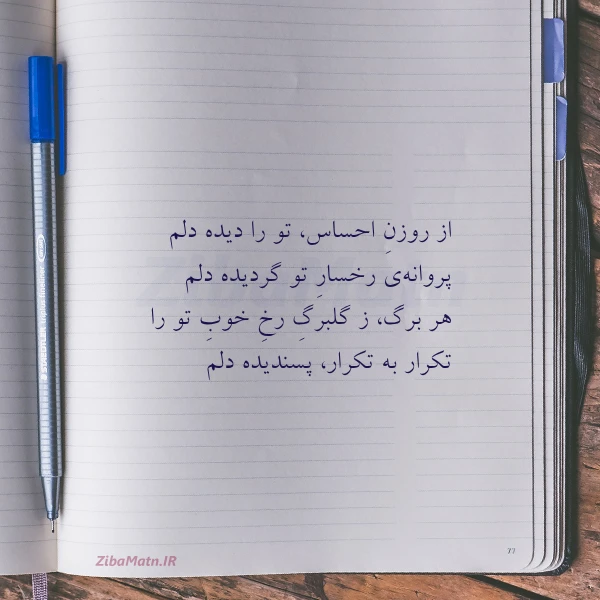 از روزنِ احساس، تو را دیده دلم
پروانه‌ی رخسارِ تو گردیده دلم
هر برگ، ز گلبرگِ رخِ خوبِ تو را
تکرار به تکرار، پسندیده دلم
ZibaMatn.IR